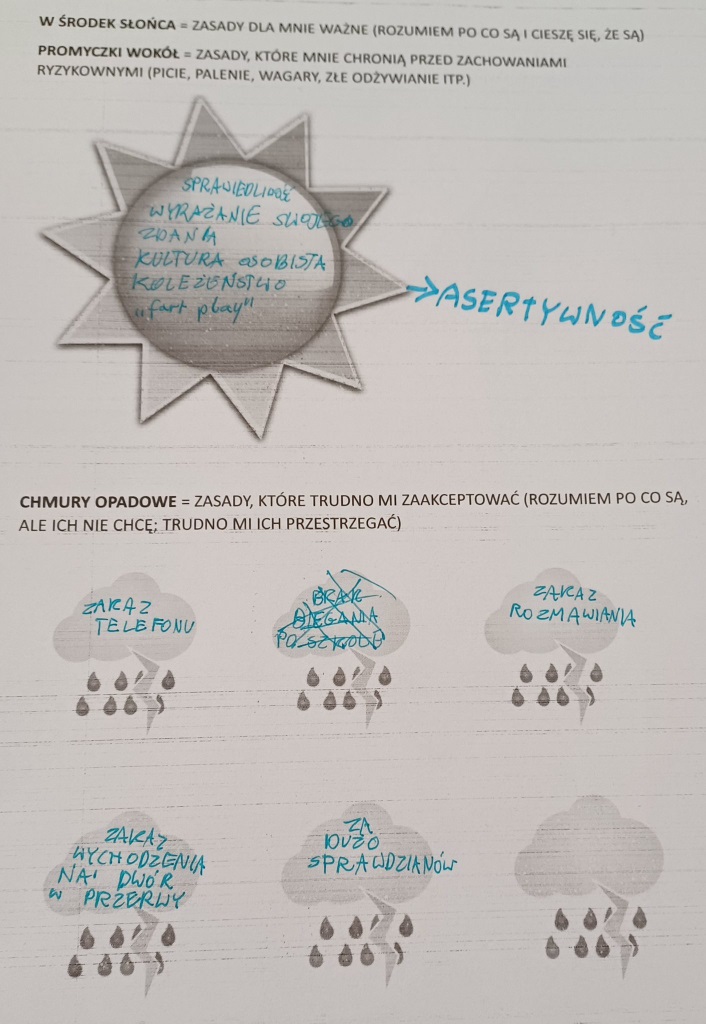 W ŚRODEK SŁOŃCA = ZASADY DLA MNIE WAŻNE (ROZUMIEM PO CO SĄ I CIESZĘ SIĘ, ŻE SĄ)
PROMYCZKI WOKÓŁ = ZASADY, KTÓRE MNIE CHRONIĄ PRZED ZACHOWANIAMI
RYZYKOWNYMI (PICIE, PALENIE, WAGARY, ZŁE ODŻYWIANIE ITP.)
SPRAWIEDLIWOŚĆ
WYRAŻANIE SWOJEGO
ZDANIA
KULTURA OSOBISTA
KOLEŻEŃSTWO
„fart play"
→ ASERTYWNOŚĆ
CHMURY OPADOWE = ZASADY, KTÓRE TRUDNO MI ZAAKCEPTOWAĆ (ROZUMIEM PO CO SĄ,
ALE ICH NIE CHCĘ; TRUDNO MI ICH PRZESTRZEGAĆ)
ZAKAZ
TELEFONU
BRAK
BIEGANIA
PO SZKOLE
ZAKAZ
ROZMAWIANIA
ZAKAZ
WYCHODZENIA
NA DWÓR
W PRZERWY
ZA
DUŻO
SPRAWDZIANÓW